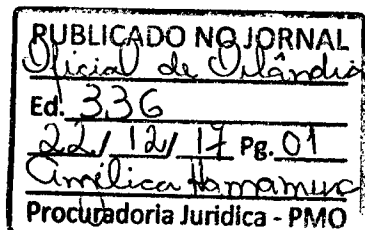 PUBLICADO NO JORNAL
Oficial de Orlândia
Ed. 336
22/12/17 Pg. 01
Procuradoria Juridica - PMO